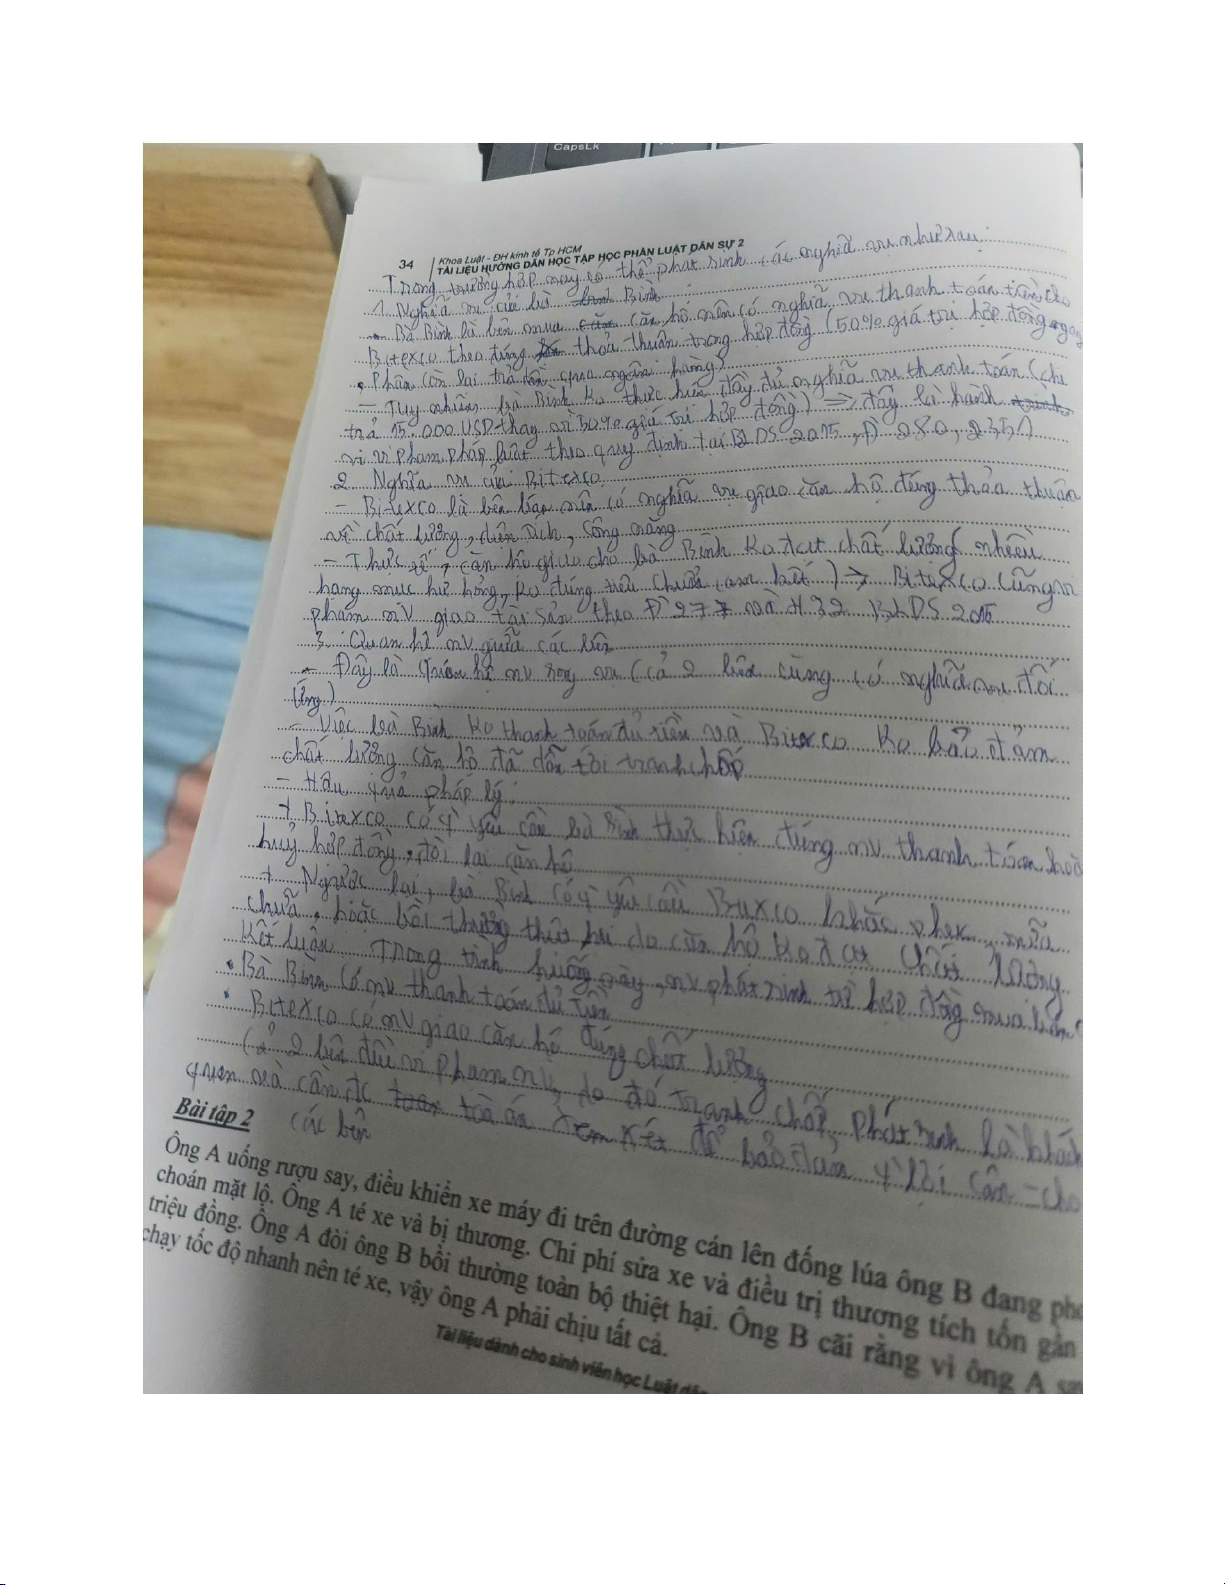 CapsLk
34 Khoa Luật - ĐH kinh tế Tp HCM
TÀI LIỆU HƯỚNG DẪN HỌC TẬP HỌC PHẦN LUẬT DÂN SỰ 2
Trong trường hợp này có thể phát sinh các nghĩa vụ như sau:
1. Nghĩa vụ của bà Bình
- Bà Bình là bên mua căn hộ nên có nghĩa vụ thanh toán tiền cho
Bitexco theo đúng thoả thuận trong hợp đồng (50% giá trị hợp đồng ngay
, phần còn lại trả qua ngân hàng)
- Tuy nhiên, bà Bình ko thực hiện đầy đủ nghĩa vụ thanh toán (chỉ
trả 15.000 USD thay vì 50% giá trị hợp đồng) => đây là hành
vi vi phạm pháp luật theo quy định tại BLDS 2015, Đ 280, 351)
2. Nghĩa vụ của Bitexco
- Bitexco là bên bán nên có nghĩa vụ giao căn hộ đúng thỏa thuận
về chất lượng, diện tích, công năng
- Thực tế, căn hộ giao cho bà Bình ko đạt chất lượng (nhiều
hạng mục hư hỏng, ko đúng tiêu chuẩn cam kết) => Bitexco cũng vi
phạm nv giao tài sản theo Đ 277 và 432 BLDS 2015
3. Quan hệ nv giữa các bên
- Đây là quan hệ nv song vụ (cả 2 bên cùng có nghĩa vụ đối
ứng)
- Việc bà Bình ko thanh toán đủ tiền và Bitexco ko bảo đảm
chất lượng căn hộ đã dẫn tới tranh chấp
- Hậu quả pháp lý:
+ Bitexco có q yêu cầu bà Bình thực hiện đúng nv thanh toán hoặc
huỷ hợp đồng, đòi lại căn hộ
+ Ngược lại, bà Bình có q yêu cầu Bitexco khắc phục, sửa
chữa, hoặc bồi thường thiệt hại do căn hộ ko đạt chất lượng
Kết luận Trong tình huống này, nv phát sinh từ hợp đồng mua bán
• Bà Bình có nv thanh toán đủ tiền
• Bitexco có nv giao căn hộ đúng chất lượng
Cả 2 bên đều vi phạm nv, do đó tranh chấp phát sinh là khách
quan và cần đc toà án xem xét để bảo đảm q lợi cho
các bên
Bài tập 2
Ông A uống rượu say, điều khiển xe máy đi trên đường cán lên đống lúa ông B đang
choán mặt lộ. Ông A té xe và bị thương. Chi phí sửa xe và điều trị thương tích tốn gần
triệu đồng. Ông A đòi ông B bồi thường toàn bộ thiệt hại. Ông B cãi rằng vì ông A
chạy tốc độ nhanh nên té xe, vậy ông A phải chịu tất cả.
Tài liệu dành cho sinh viên học Luật